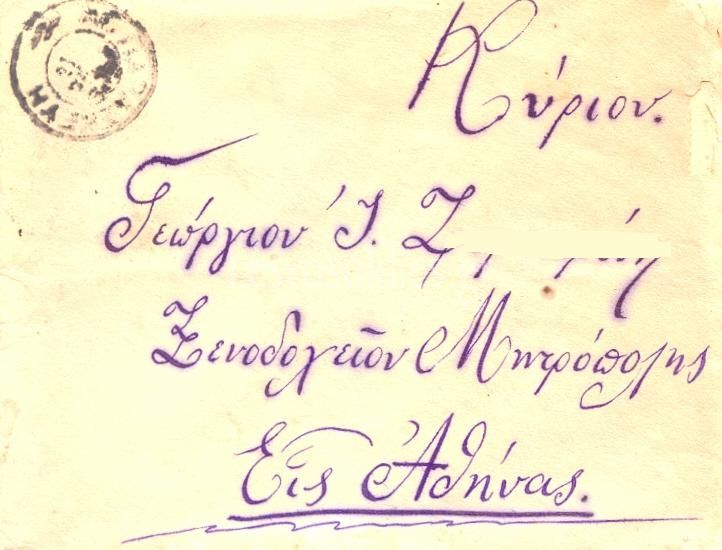 Κύριον.
Γεώργιον Ἰ.
Ξενοδοχεῖον Μητρόπολης
Εἰς Ἀθήνας.